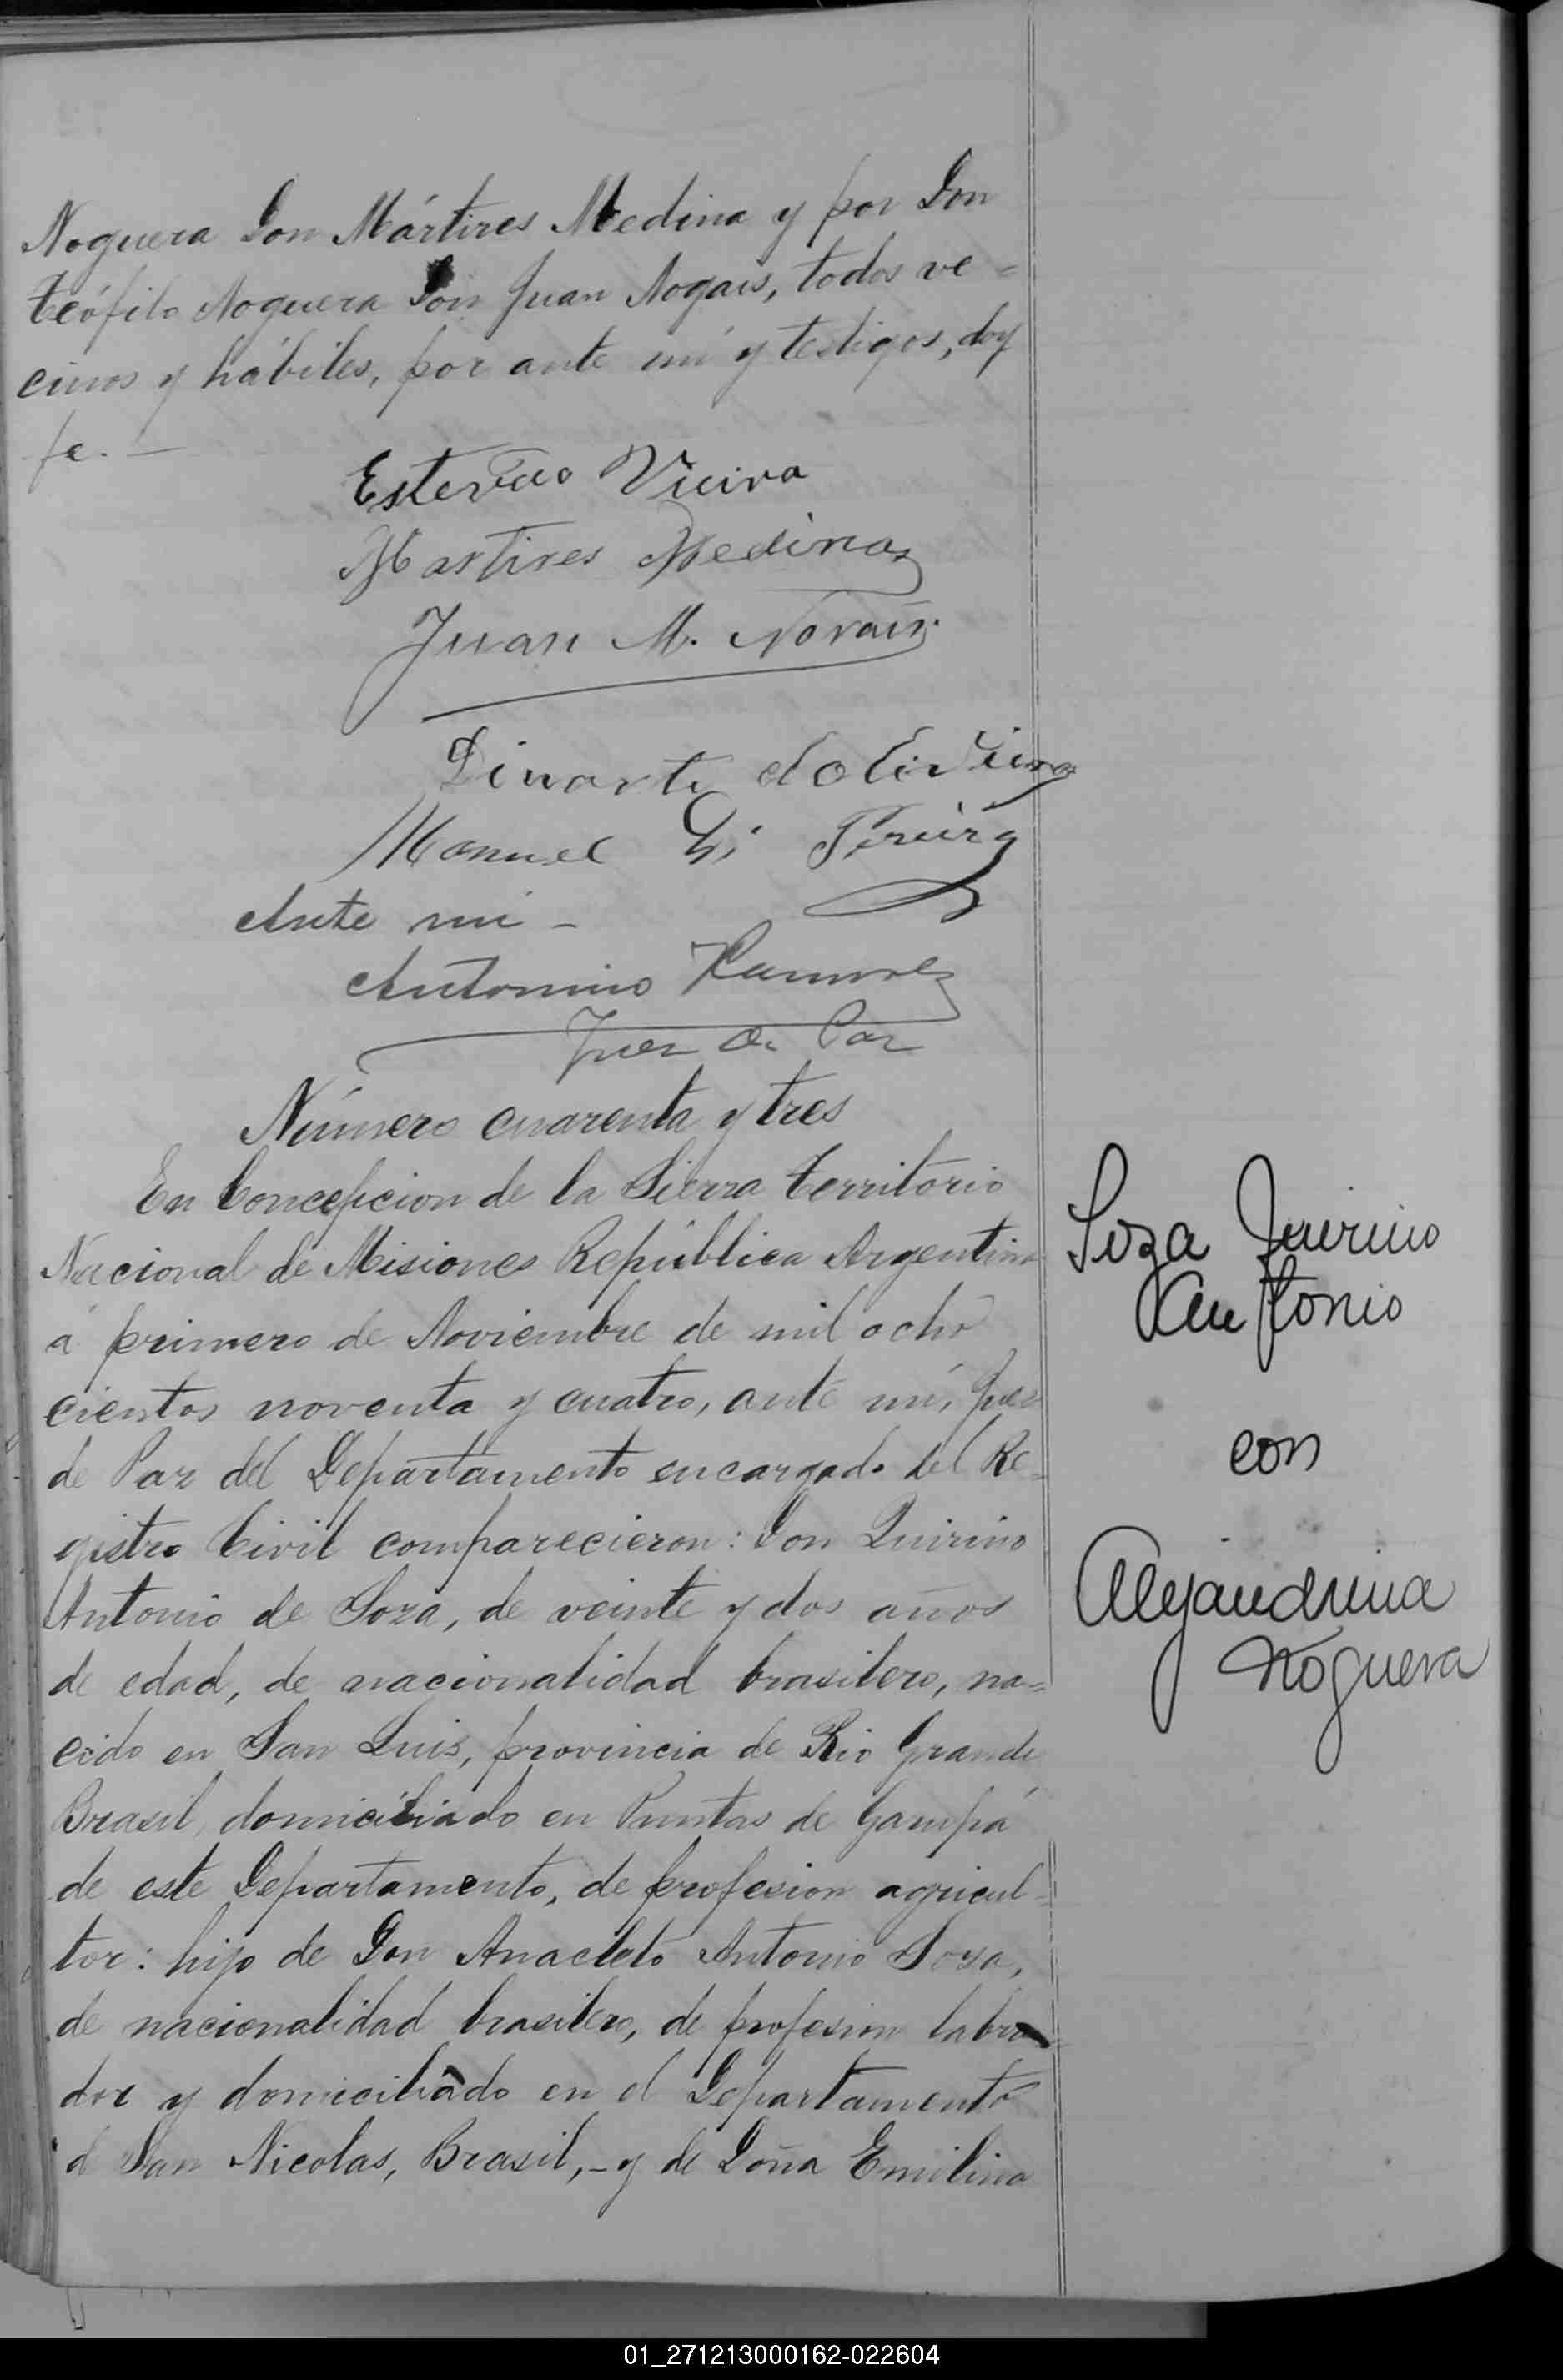 Noguera Don Mártires Medina y por Don
Teófilo Noguera Don Juan Nogais, todos ve=
cinos y hábiles, por ante mí y testigos, doy
fe. —
Estevao Vieira
Martires Medina
Juan M. Novais.
Dinarte
Manuel Pereira
Ante mi -
Antonino Ramirez
Juez de Paz
Número cuarenta y tres
En Concepcion de la Sierra Territorio
Nacional de Misiones República Argentina
á primero de Noviembre de mil ocho
cientos noventa y cuatro, ante mí, Juez
de Paz del Departamento encargado del Re=
gistro Civil comparecieron: Don Quirino
Antonio de Soza, de veinte y dos años
de edad, de nacionalidad brasilero, na=
cido en San Luis, provincia de Rio Grande
Brasil, domiciliado en Puntas de Garupá
de este Departamento, de profesion agricul=
tor: hijo de Don Anacleto Antonio Soza,
de nacionalidad brasilero, de profesion labra
dor y domiciliado en el Departamento
d San Nicolas, Brasil,- y de Doña Emilina
Soza Quirino
Antonio
con
Alejandrina
Noguera
01_271213000162-022604